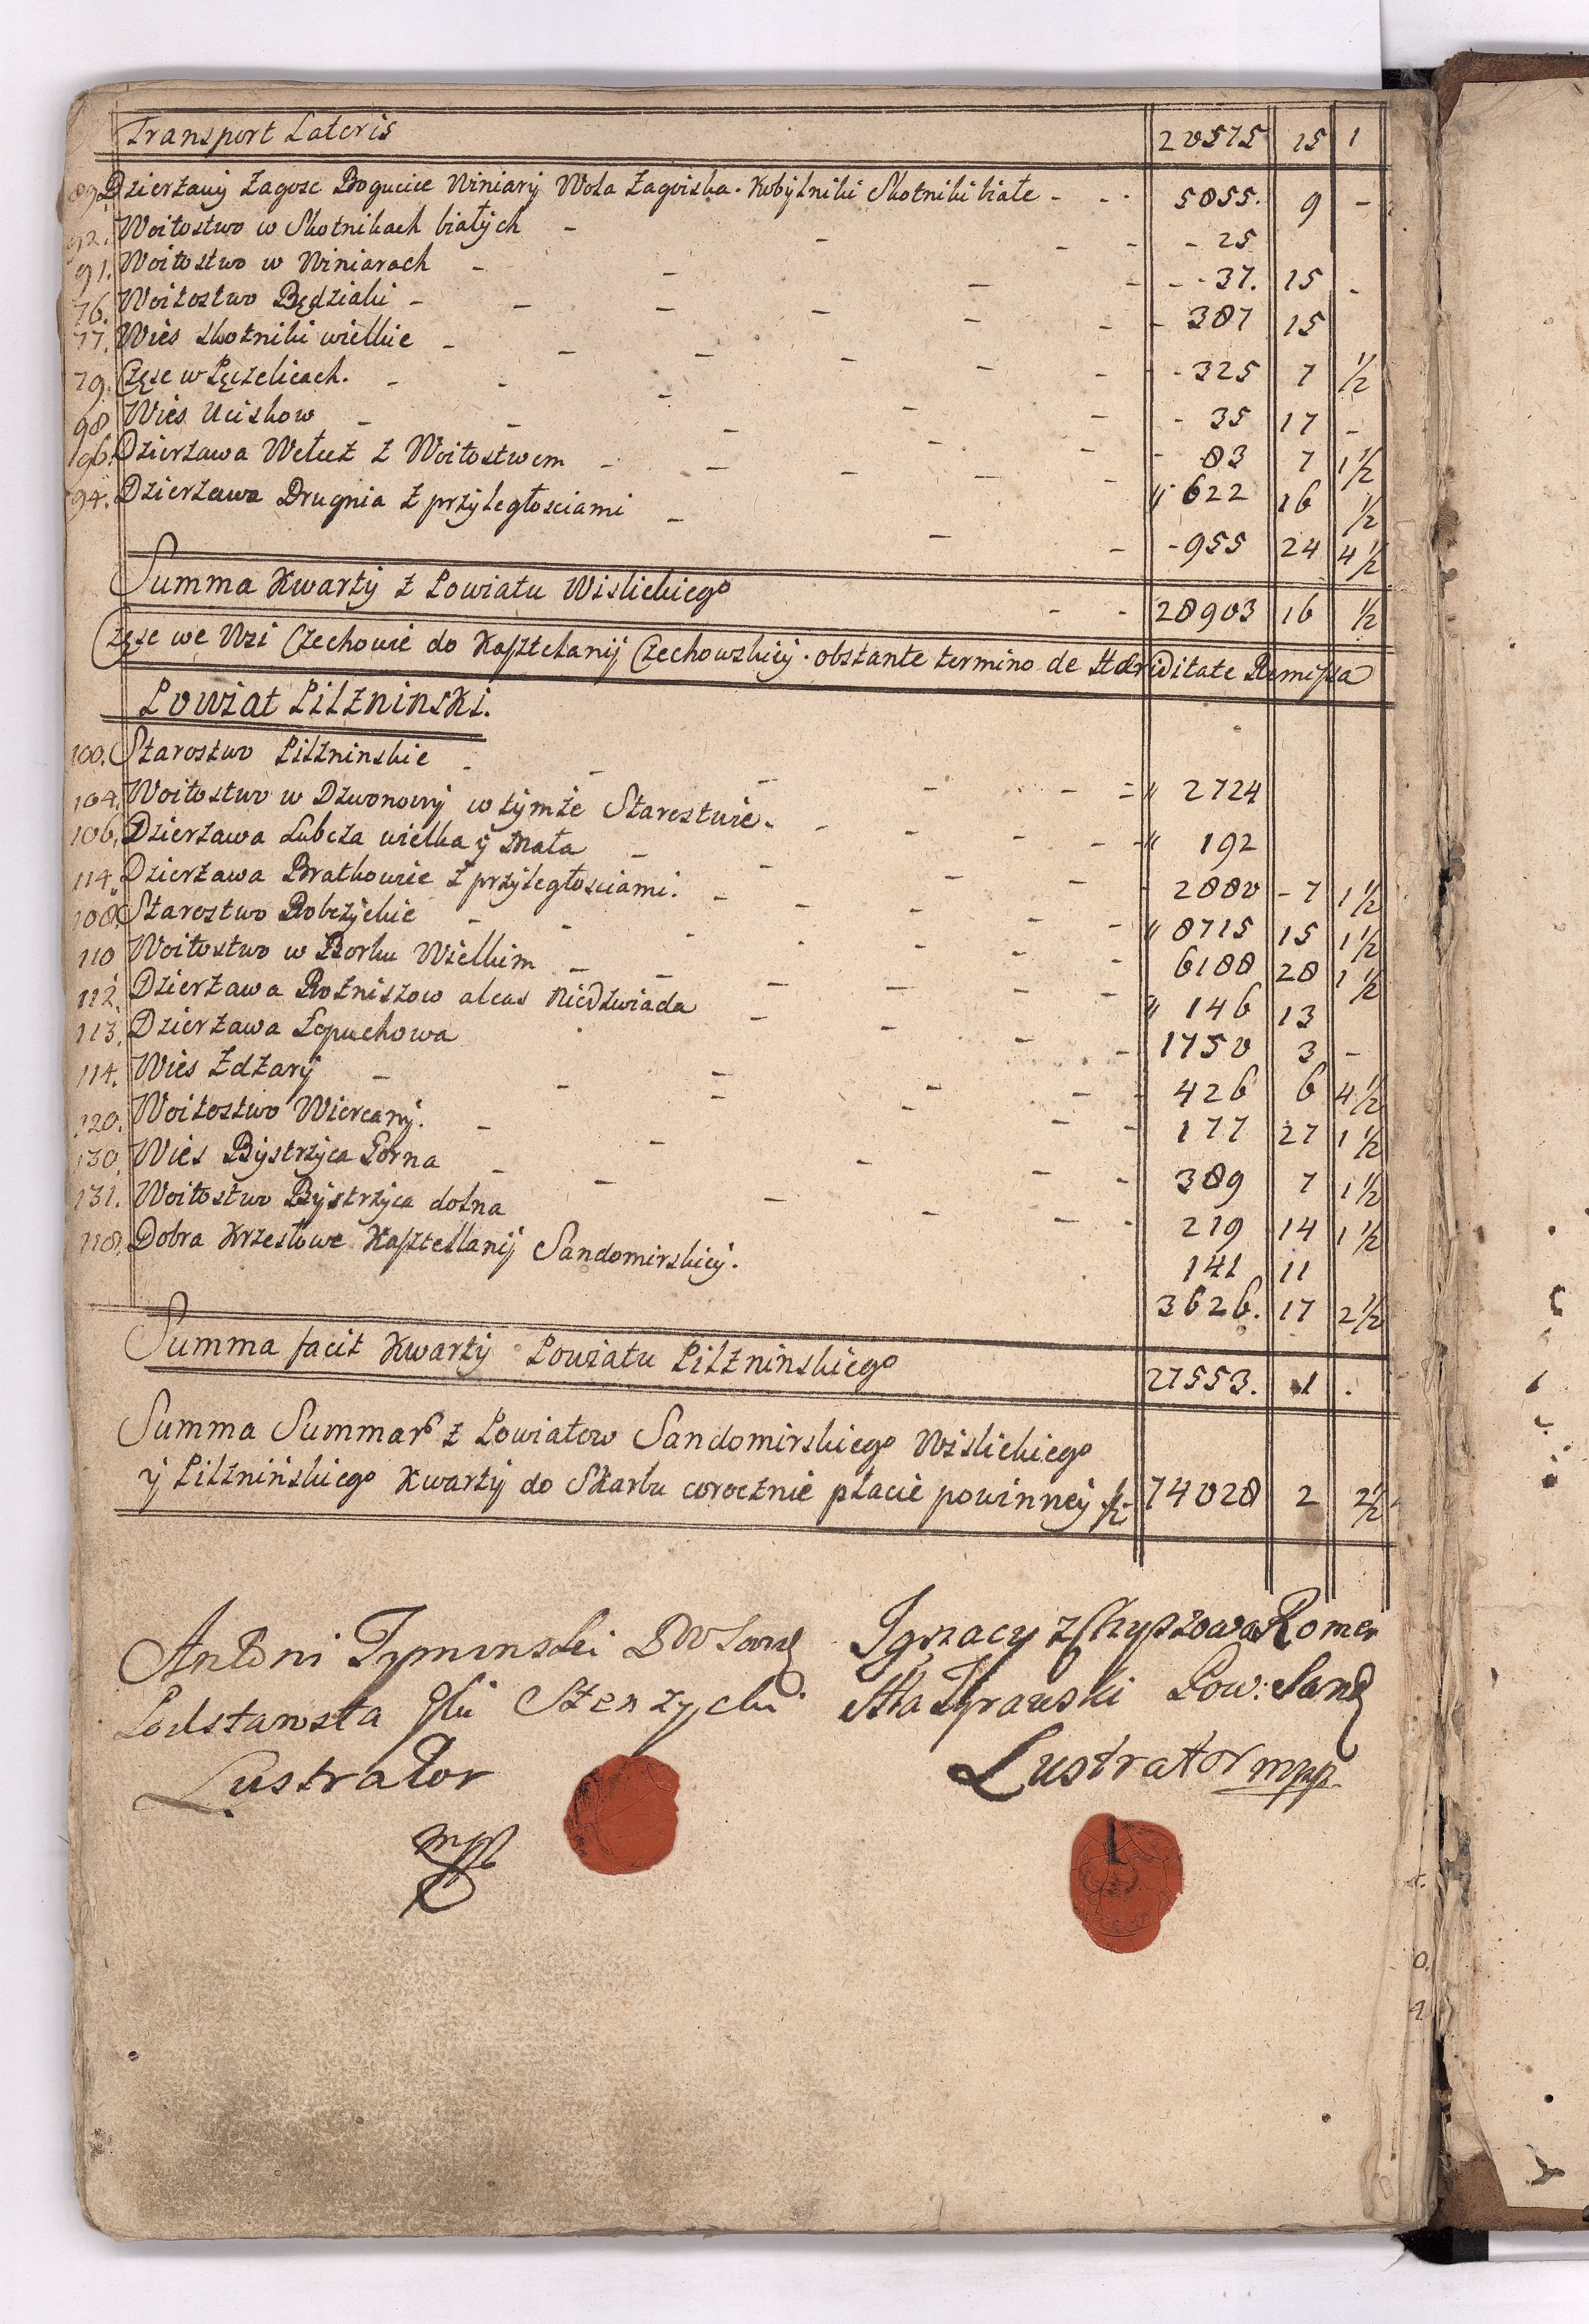 Transport Lateris 20575 15 1
89. Dzierżawy Zagosc Bogucice Winiary Wola Zagoiska. Kobylniki Skotniki białe - - - 5855. 9 -
92. Woitostwo w Skotnikach białych - - - - 25
91. Woitostwo w Winiarach - - - - 37. 15 -
76. Woitostwo Będziaki - - - - 387 15
77. Wies Skotniki wielkie - - - - 325 7 1/2
79. Częsc w Pęczelicach. - - - - 35 17 -
98 Wies Uciskow - - - - 83 7 1 1/2
196. Dzierzawa Wełecz z Woitostwem - - - - 622 16 1/2
94. Dzierzawa Drugnia z przyległosciami - - - 955 24 4 1/2
Summa Kwarty z Powiatu Wislickiego - - 28903 16 1/2
Częsc we Wsi Czechowie do Kasztelanij Czechowskiey. obstante termino de Haereditate Remissa
Powiat Pilzninski.
100. Starostwo Pilzninskie - - - - 2724
104. Woitostwo w Dzwonowy w tymże Starostwie - - - - 192
106. Dzierzawa Lubcza wielka y Mała - - - - 2880 - 7 1 1/2
114. Dzierżawa Bratkowie z przyległosciami. - - - - 8715 15 1 1/2
108. Starostwo Robczyckie - - - - 6188 28 1 1/2
110 Woitostwo w Borku Wielkim - - - - 146 13
112. Dzierżawa Rożniszow alias Niedzwiada - - - 1750 3 -
113. Dzierżawa Łopuchowa - - - 426 6 4 1/2
114. Wies Zdżary - - - - 177 27 1 1/2
120. Woitostwo Wiercany. - - - - 389 7 1 1/2
130. Wies Bystrzyca Gorna - - - - 219 14 1 1/2
131. Woitostwo Bystrzyca dolna - - - 141 11
118. Dobra Krzesłowe Kasztellanij Sandomirskiey. 3626. 17 2 1/2
Summa facit Kwarty Powiatu Pilzninskiego 27553. 1 .
Summa Summar z Powiatow Sandomirskiego Wislickiego
y Pilznińskiego Kwarty do Skarbu corocznie płacic powinney 74028 2 2 1/2
Antoni Tyminski
Stenzycki
Lustrator
mpp
Ignacy z Chyszowa Romer
Pow: Sand
Lustrator mpp